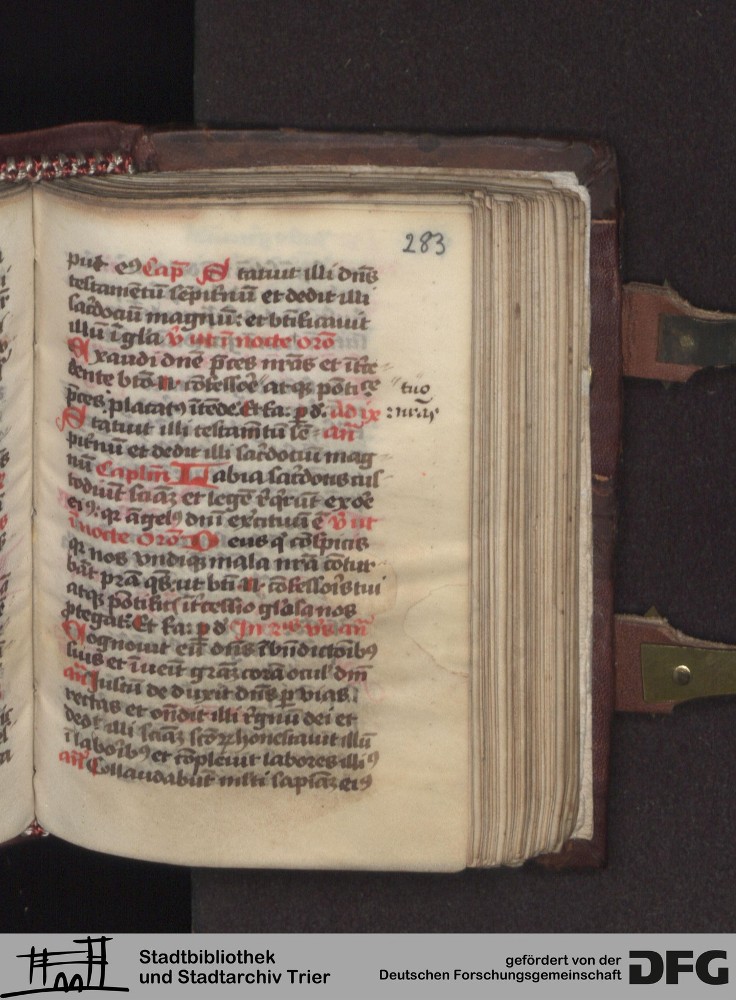 283
put eꝯ Cap̅ Statuit illi dn̅s
testamentū sēpit̅nū et dedit illi
sac̅dotiū magnum: et btīficauit
illū ī gl̅a v̅ ut ī nocte oro̅
Exaudi dn̅e p̅ces nr̅as et īt̅ce
dente btō N cōfessōe atqꝫ pōtifice tuo
p̅ces placatꝯ ītēde Et fa. p d. ad ix nr̅as
Statuit illi testam̅tū sē an̅
pit̅nū et dedit illi sac̅dotiū mag
nū Caplm̅ Labia sac̅dotis cus
todiūt sciāꝫ et legē r̅q̅rūt ex oē
eiꝯ: qꝛ āgelꝯ dn̅i ex̅cituū ē v̅ ut
ī nocte oro̅ Deus q̅ cōspicis
qꝛ nos vndiqꝫ mala nr̅a cōtur
bāt pr̅a qs̅ ut bt̅i N cōfessoris tui
atqꝫ pōtific̅ īt̅cessio gl̅osa nos
ptegat. Et fa. p d In 2is v̅is an̅
Cognouit eū dn̅s ī bn̅dictōibꝯ
suis et īuēit gr̅aꝫ corā ocul̅ dn̅i
an̅ Iustū deduxit dn̅s p vias
rectas et on̅dit illi r̅gnū dei et
dedit illi sciāꝫ sc̅oꝝ honestauit illū
ī laboribꝯ et cōpleuit labores illiꝯ
an̅ Collaudabūt ml̅ti sapiāꝫ eiꝯ
Stadtbibliothek
und Stadtarchiv Trier
gefördert von der
Deutschen Forschungsgemeinschaft
DFG